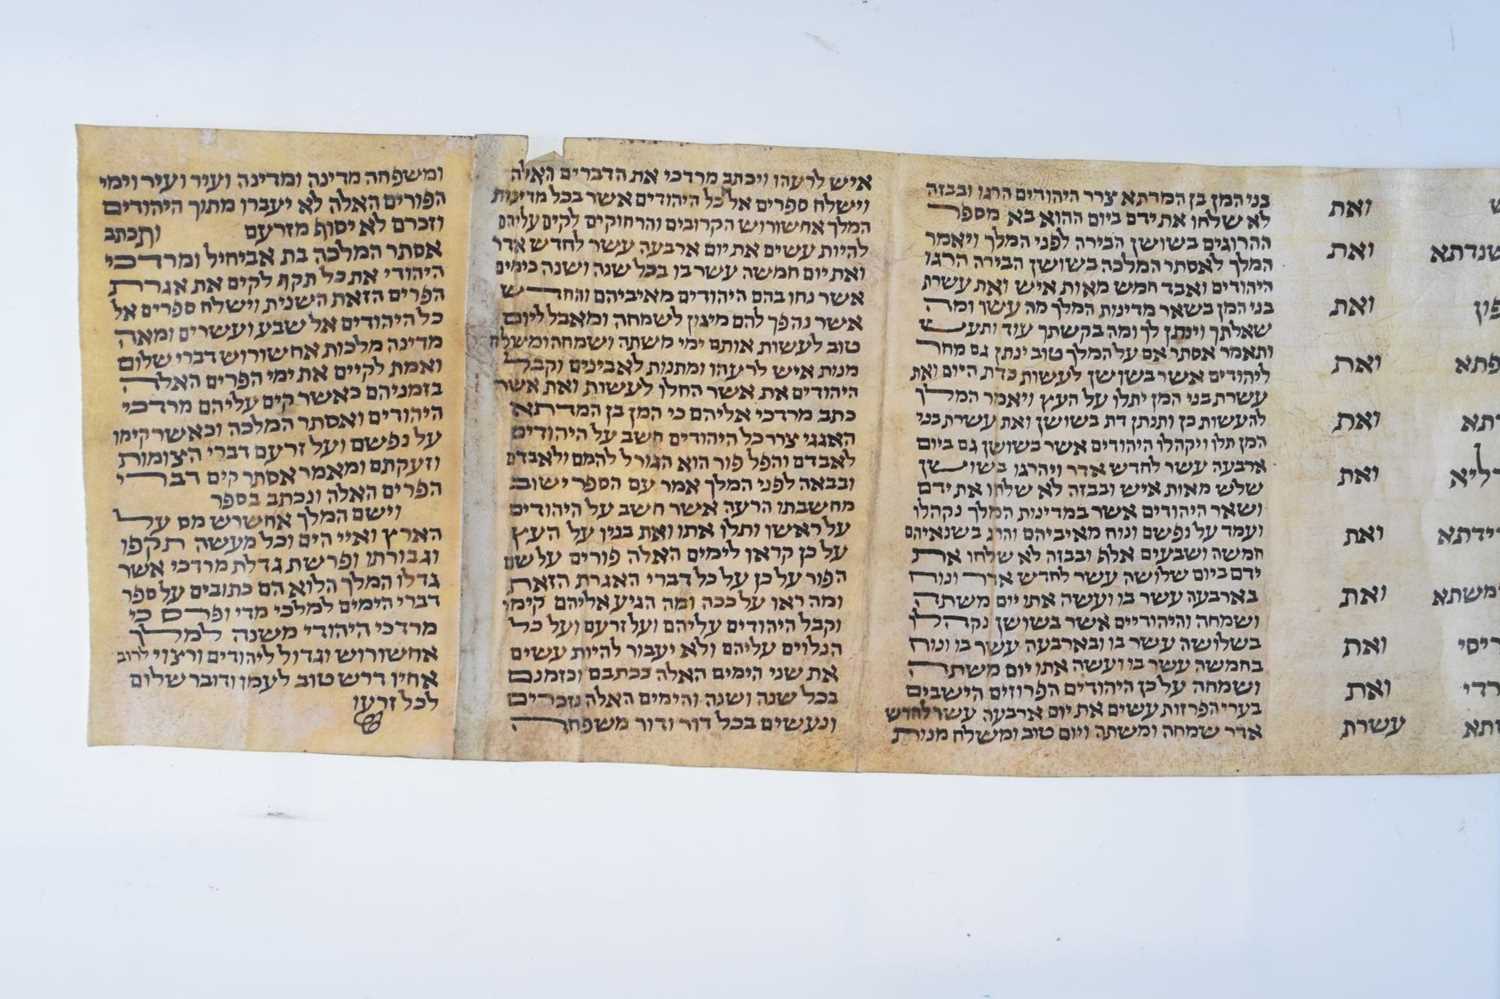 ש ואת
שנדתא ואת
פון ואת
פתא ואת
רתא ואת
דליא ואת
רידתא ואת
משתא ואת
ריסי ואת
רדי ואת
תא עשרת
בני המן בן המדתא צרר היהודים הרגו ובבזה
לא שלחו את ידם ביום ההוא בא מספר
ההרוגים בשושן הבירה לפני המלך ויאמר
המלך לאסתר המלכה בשושן הבירה הרגו
היהודים ואבד חמש מאות איש ואת עשרת
בני המן בשאר מדינות המלך מה עשו ומה
שאלתך וינתן לך ומה בקשתך עוד ותעש
ותאמר אסתר אם על המלך טוב ינתן גם מחר
ליהודים אשר בשושן לעשות כדת היום ואת
עשרת בני המן יתלו על העץ ויאמר המלך
להעשות כן ותנתן דת בשושן ואת עשרת בני
המן תלו ויקהלו היהודים אשר בשושן גם ביום
ארבעה עשר לחדש אדר ויהרגו בשושן
שלש מאות איש ובבזה לא שלחו את ידם
ושאר היהודים אשר במדינות המלך נקהלו
ועמד על נפשם ונוח מאיביהם והרג בשנאיהם
חמשה ושבעים אלף ובבזה לא שלחו את
ידם ביום שלושה עשר לחדש אדר ונוח
בארבעה עשר בו ועשה אתו יום משתה
ושמחה והיהודיים אשר בשושן נקהלו
בשלושה עשר בו ובארבעה עשר בו ונוח
בחמשה עשר בו ועשה אתו יום משתה
ושמחה על כן היהודים הפרוזים הישבים
בערי הפרזות עשים את יום ארבעה עשר לחדש
אדר שמחה ומשתה ויום טוב ומשלח מנות
איש לרעהו ויכתב מרדכי את הדברים האלה
וישלח ספרים אל כל היהודים אשר בכל מדינות
המלך אחשורוש הקרובים והרחוקים לקים עליהם
להיות עשים את יום ארבעה עשר לחדש אדר
ואת יום חמשה עשר בו בכל שנה ושנה כימים
אשר נחו בהם היהודים מאיביהם והחדש
אשר נהפך להם מיגון לשמחה ומאבל ליום
טוב לעשות אותם ימי משתה ושמחה ומשלח
מנות איש לרעהו ומתנות לאבינים וקבל
היהודים את אשר החלו לעשות ואת אשר
כתב מרדכי אליהם כי המן בן המדתא
האגגי צרר כל היהודים חשב על היהודים
לאבדם והפל פור הוא הגורל להמם ולאבדם
ובבאה לפני המלך אמר עם הספר ישוב
מחשבתו הרעה אשר חשב על היהודים
על ראשו ותלו אתו ואת בניו על העץ
על כן קראו לימים האלה פורים על שם
הפור על כן על כל דברי האגרת הזאת
ומה ראו על ככה ומה הגיע אליהם קימו
וקבל היהודים עליהם ועל זרעם ועל כל
הנלוים עליהם ולא יעבור להיות עשים
את שני הימים האלה ככתבם וכזמנם
בכל שנה ושנה והימים האלה נזכרים
ונעשים בכל דור ודור משפחה
ומשפחה מדינה ומדינה ועיר ועיר וימי
הפורים האלה לא יעברו מתוך היהודים
וזכרם לא יסוף מזרעם ותכתב
אסתר המלכה בת אביחיל ומרדכי
היהודי את כל תקף לקים את אגרת
הפרים הזאת השנית וישלח ספרים אל
כל היהודים אל שבע ועשרים ומאה
מדינה מלכות אחשורוש דברי שלום
ואמת לקיים את ימי הפרים האלה
בזמניהם כאשר קים עליהם מרדכי
היהודים ואסתר המלכה וכאשר קימו
על נפשם ועל זרעם דברי הצומות
וזעקתם ומאמר אסתר קים דברי
הפרים האלה ונכתב בספר
וישם המלך אחשרש מס על
הארץ ואיי הים וכל מעשה תקפו
וגבורתו ופרשת גדלת מרדכי אשר
גדלו המלך הלוא הם כתובים על ספר
דברי הימים למלכי מדי ופרס כי
מרדכי היהודי משנה למלך
אחשורוש וגדול ליהודים ורצוי לרוב
אחיו דרש טוב לעמו ודובר שלום
לכל זרעו